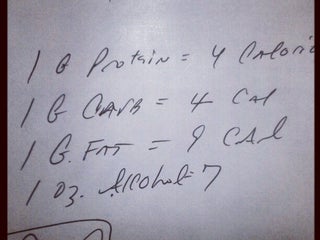 1 G Protain = 4 Calori
1 G CARB = 4 CAl
1 G. FAT = 9 CAl
1 Oz. Alcohol = 7